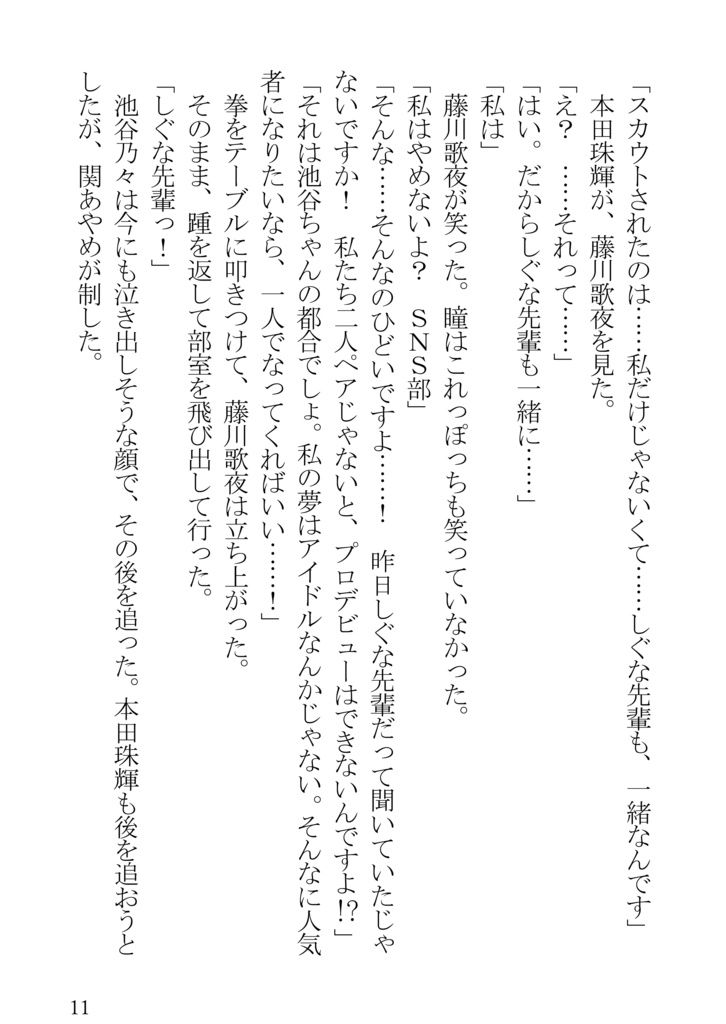 「スカウトされたのは……私だけじゃないくて……しぐな先輩も、一緒なんです」
　本田珠輝が、藤川歌夜を見た。
「え？　……それって……」
「はい。だからしぐな先輩も一緒に……」
「私は」
　藤川歌夜が笑った。瞳はこれっぽっちも笑っていなかった。
「私はやめないよ？　ＳＮＳ部」
「そんな……そんなのひどいですよ……！　昨日しぐな先輩だって聞いていたじゃ
ないですか！　私たち二人ペアじゃないと、プロデビューはできないんですよ!?」
「それは池谷ちゃんの都合でしょ。私の夢はアイドルなんかじゃない。そんなに人気
者になりたいなら、一人でなってくればいい……！」
　拳をテーブルに叩きつけて、藤川歌夜は立ち上がった。
　そのまま、踵を返して部室を飛び出して行った。
「しぐな先輩っ！」
　池谷乃々は今にも泣き出しそうな顔で、その後を追った。本田珠輝も後を追おうと
したが、関あやめが制した。
11